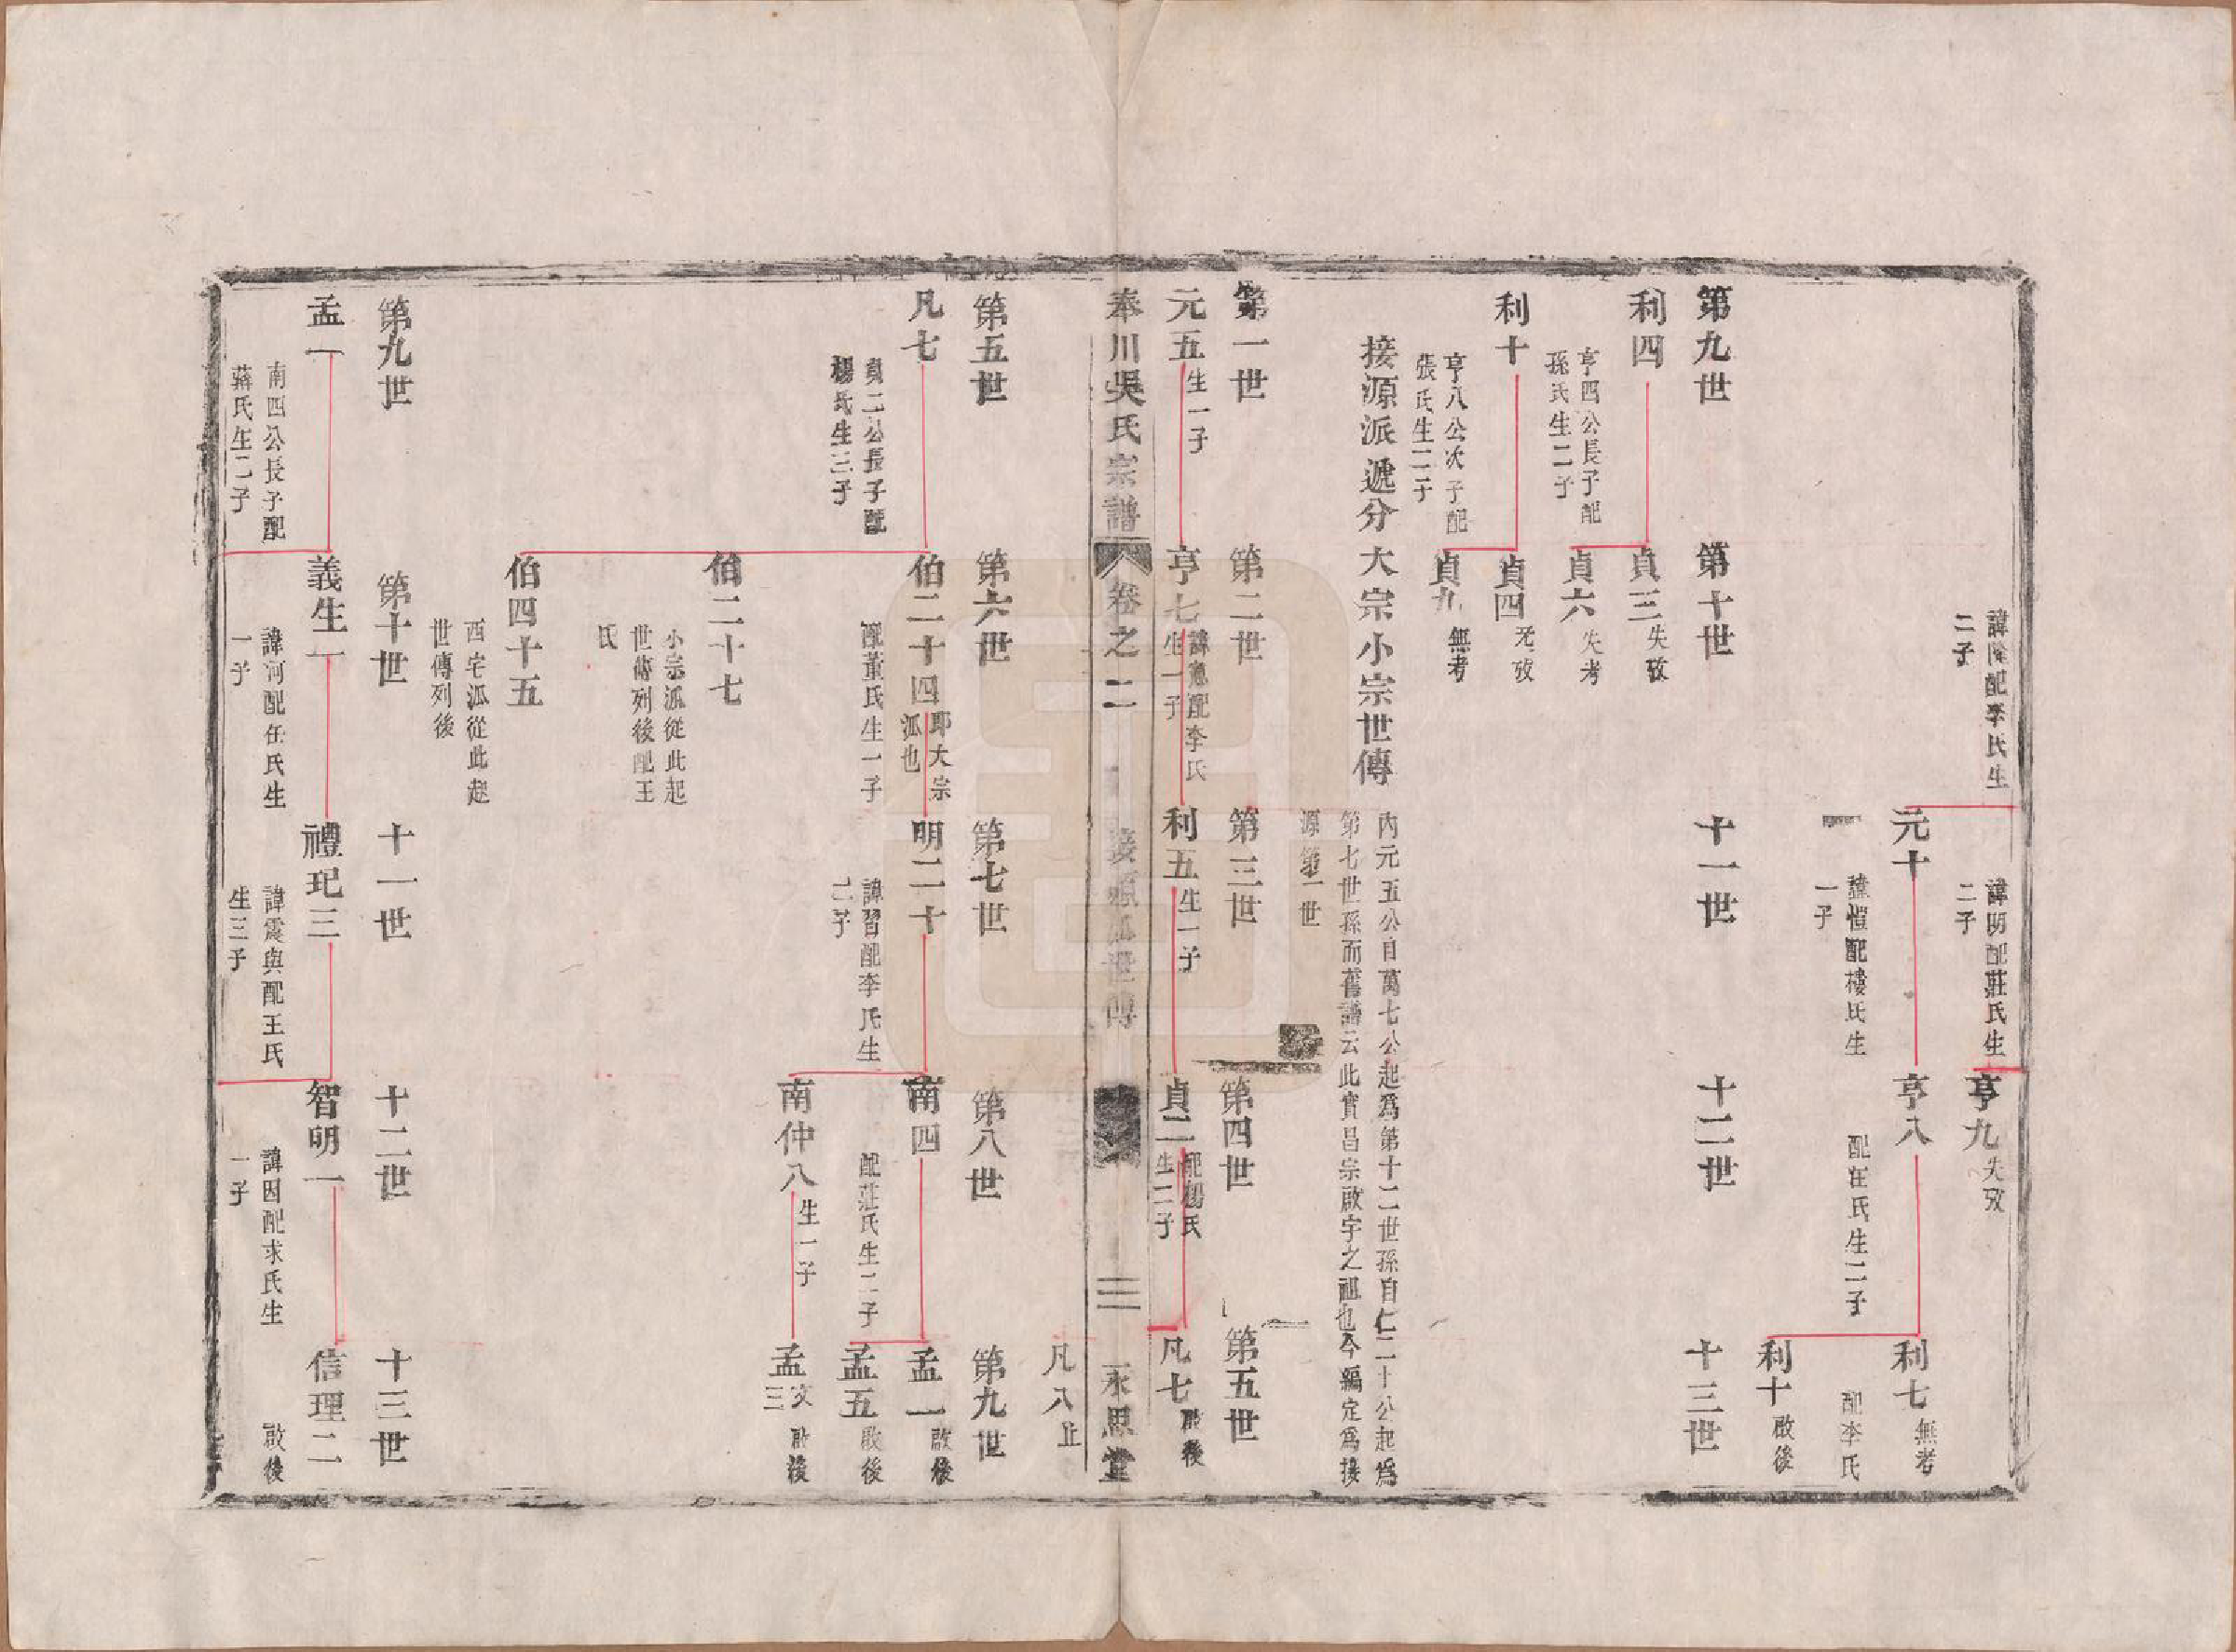 諱隆配李氏生
二子
諱明配莊氏生
二子
亨九
失攷
元十
諱愷配樓氏生
一子
亨八
配汪氏生二子
利七
無考
配李氏
利十
啟後
第九世
第十世
十一世
十二世
十三世
利四
亨四公長子配
孫氏生二子
貞三
失攷
貞六
失考
利十
亨八公次子配
張氏生二子
貞四
无攷
貞九
無考
接源派遞分大宗小宗世傳
內元五公自萬七公起爲第十二世孫自仁二十公起爲
第七世孫而舊譜云此實昌宗啟宇之祖也今編定爲接
源第一世
第一世
第二世
第三世
第四世
第五世
元五
生一子
亨七
諱憲配李氏
生一子
利五
生一子
貞二
配楊氏
生二子
凡七
啟後
奉川吳氏宗譜
卷之二
接源派世傳
三
永思堂
凡八
止
第五世
第六世
第七世
第八世
第九世
凡七
貞二公長子配
楊氏生三子
伯二十四
即大宗
派也
配董氏生一子
明二十
諱習配李氏生
二子
南四
配莊氏生二子
孟一
啟後
孟五
啟後
南仲八
生一子
孟
文
三
啟後
伯二十七
小宗派從此起
世傳列後配王
氏
伯四十五
西宅派從此起
世傳列後
第九世
第十世
十一世
十二世
十三世
孟一
南四公長子配
蔣氏生二子
義生一
諱河配任氏生
一子
禮玘三
諱震與配王氏
生三子
智明一
諱因配求氏生
一子
信理二
啟後